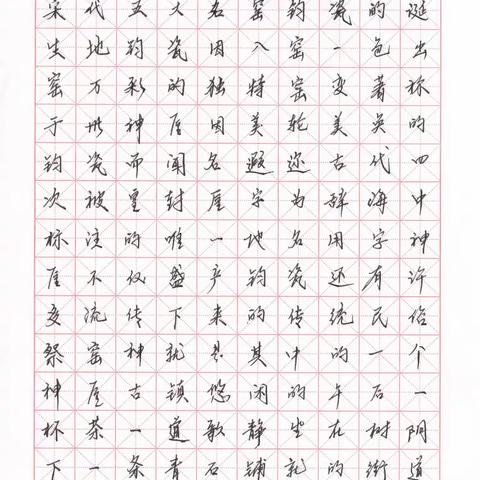 宋代五大名窑钧瓷的诞
生地钧瓷因入窑一色出
窑万彩的独特窑变著称
于世神垕因美轮美奂的
钧瓷而闻名遐迩古代四
次被皇封垕字为辞海中
标注的唯一地名用字神
垕不仅盛产钧瓷还有许
多流传下来的传统民俗
祭窑神就是其中的一个
神垕古镇悠闲的午后一
杯茶一道歌静坐在树阴
下一条青石铺就的街道